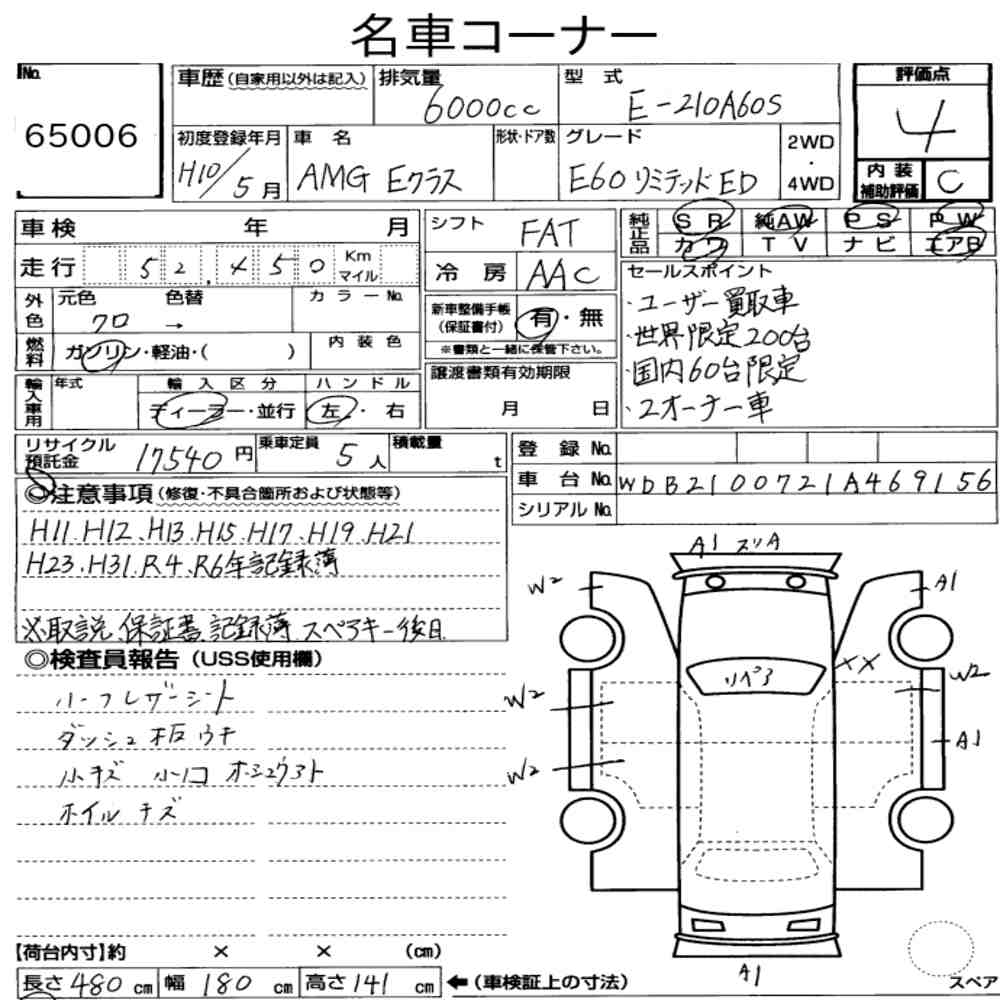 名車コーナー
No. 65006
車歴 (自家用以外は記入) 排気量 6000cc 型式 E-210A60S
評価点 4
初度登録年月 H10/5月 車名 AMG Eクラス 形状・ドア数 グレード E60 リミテッドED 2WD・4WD
内装補助評価 C
車検 年 月 シフト FAT
純正品 SR 純AW PS PW
カワ TV ナビ エアB
走行 52,450 Km マイル
冷房 AAC
セールスポイント
・ユーザー買取車
・世界限定200台
・国内60台限定
・2オーナー車
外色 元色 クロ → 色替 カラーNo.
新車整備手帳(保証書付) 有・無
※書類と一緒に保管下さい。
燃料 ガソリン・軽油・( ) 内装色
輸入車用 年式 輸入区分 ハンドル
ディーラー・並行 左・右
譲渡書類有効期限
月 日
リサイクル預託金 17540円 乗車定員 5人 積載量 t
登録No.
車台No. WDB2100721A469156
シリアルNo.
◎注意事項(修復・不具合箇所および状態等)
H11.H12、H13.H15.H17.H19.H21
H23.H31.R4、R6年記録簿
※取説 保証書 記録簿 スペアキー後日
◎検査員報告(USS使用欄)
ハーフレザーシート
ダッシュ板ウキ
小キズ 小凹 オシュウアト
ホイルキズ
A1 スリA
W2 A1
リペア XX W2
W2 A1
W2
A1
スペア
【荷台内寸】約 × × (cm)
長さ 480 cm 幅 180 cm 高さ 141 cm ←(車検証上の寸法)